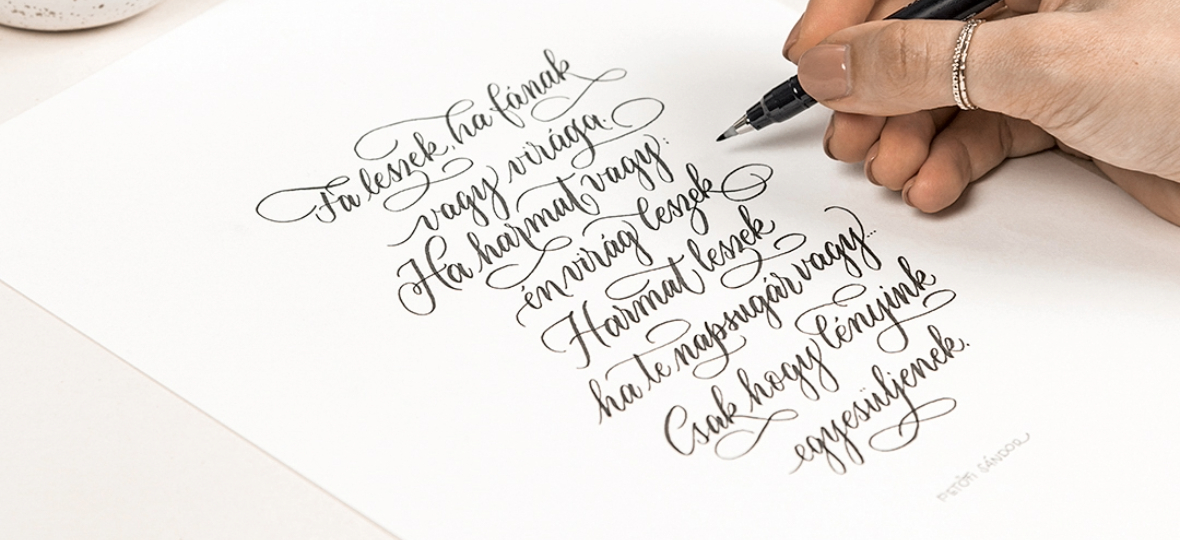 Fa leszek, ha fának
vagy virága.
Ha harmat vagy:
én virág leszek
Harmat leszek
ha te napsugár vagy...
Csak hogy lényink
egyesüljenek.
PETŐFI SÁNDOR